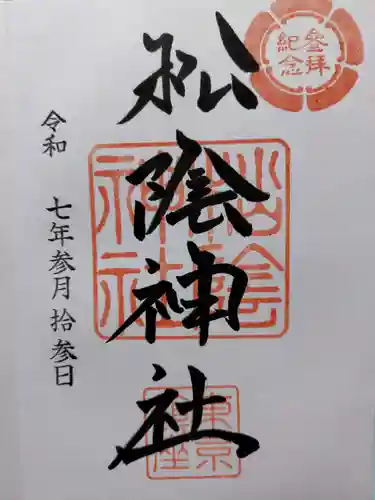 参拝
紀念
松陰神社
松陰
神社
東京
令和 七年参月拾参日